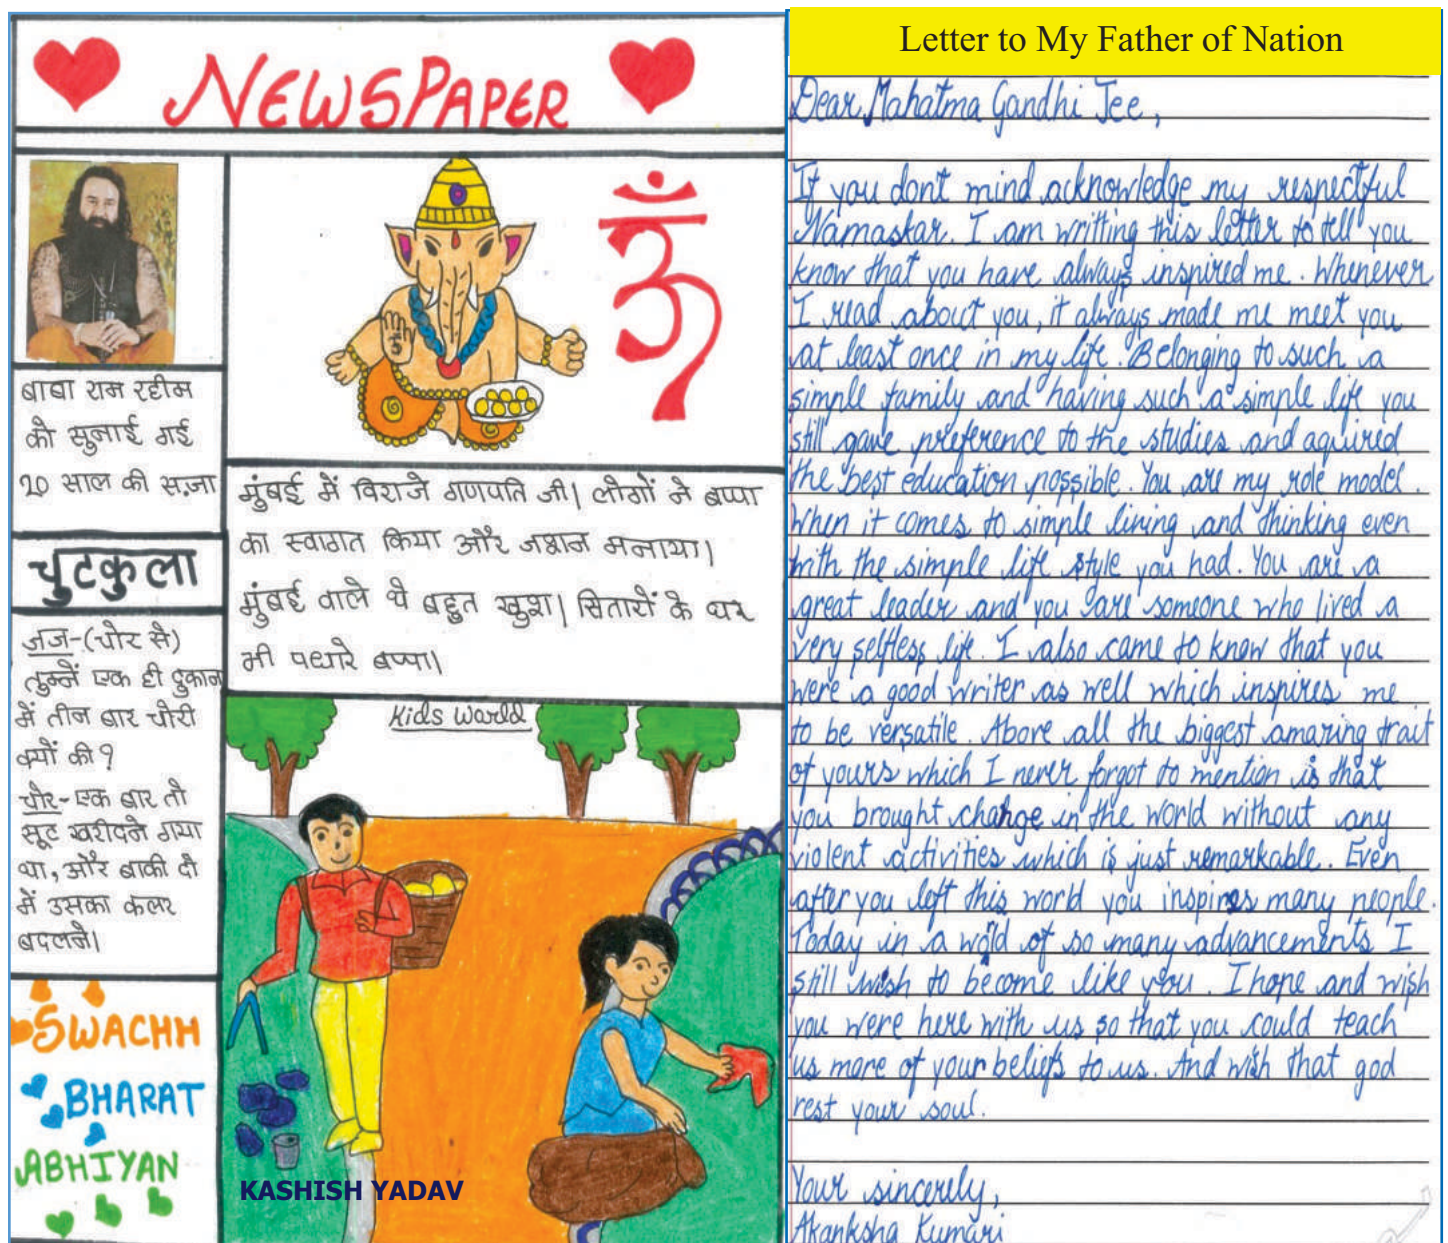 NEWSPAPER
बाबा राम रहीम
को सुनाई गई
20 साल की सज़ा
चुटकुला
जज-(चोर से)
तुम्नें एक ही दुकान
में तीन बार चोरी
क्यों की?
चोर-एक बार तो
सूट खरीदने गया
था, और बाकी दो
में उसका कलर
बदलने।
SWACHH
BHARAT
ABHIYAN
ॐ
मुंबई में विराजे गणपति जी। लोगों ने बप्पा
का स्वागत किया और जश्न मनाया।
मुंबई वाले थे बहुत खुश। सितारों के घर
भी पधारे बप्पा।
Kids World
KASHISH YADAV
Letter to My Father of Nation
Dear Mahatma Gandhi Jee,
If you dont mind acknowledge my respectful
Namaskar. I am writting this letter to tell you
know that you have always inspired me. Whenever
I read about you, it always made me meet you
at least once in my life. Belonging to such a
simple family and having such a simple life you
still gave preference to the studies and aquired
the best education possible. You are my role model.
When it comes to simple living and thinking even
with the simple life style you had. You are a
great leader and you are someone who lived a
very selfless life. I also came to know that you
were a good writer as well which inspires me
to be versatile. Above all the biggest amazing trait
of yours which I never forgot to mention is that
you brought change in the world without any
violent activities which is just remarkable. Even
after you left this world you inspires many people.
Today in a world of so many advancements I
still wish to become like you. I hope and wish
you were here with us so that you could teach
us more of your beliefs to us. And wish that god
rest your soul.
Your sincerely,
Akanksha Kumari